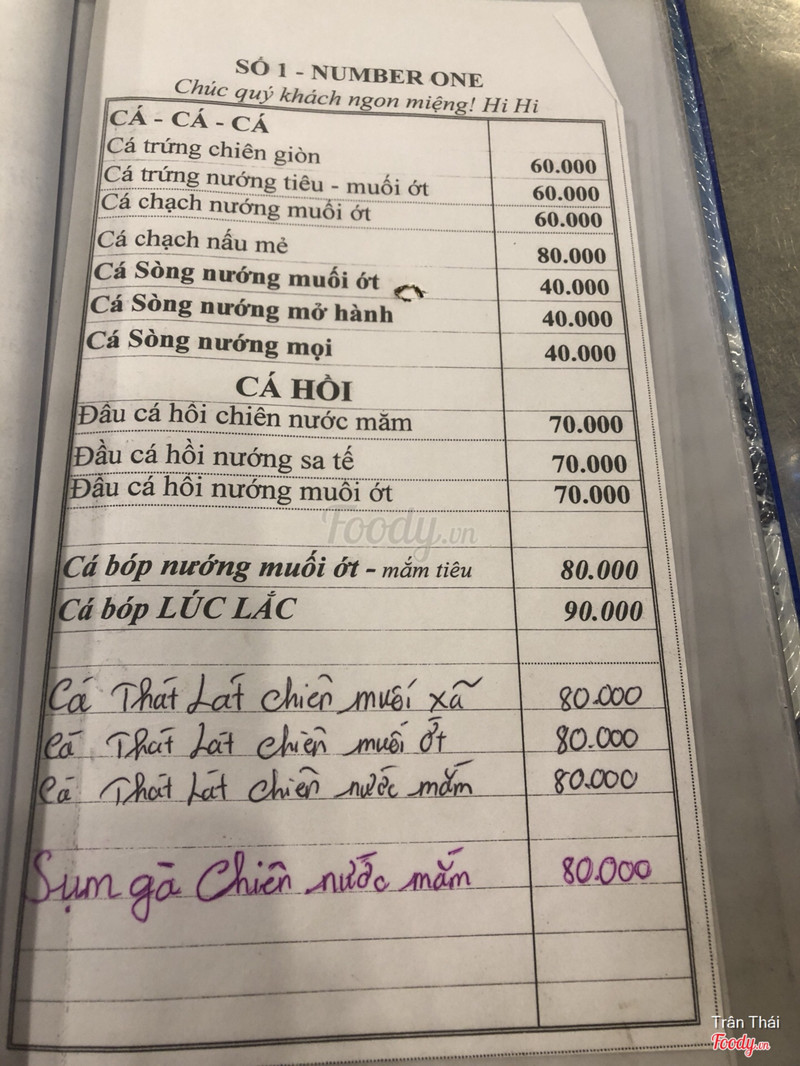 SỐ 1 - NUMBER ONE
Chúc quý khách ngon miệng! Hi Hi
CÁ - CÁ - CÁ
Cá trứng chiên giòn 60.000
Cá trứng nướng tiêu - muối ớt 60.000
Cá chạch nướng muối ớt 60.000
Cá chạch nấu mẻ 80.000
Cá Sòng nướng muối ớt 40.000
Cá Sòng nướng mở hành 40.000
Cá Sòng nướng mọi 40.000
CÁ HỒI
Đầu cá hồi chiên nước mắm 70.000
Đầu cá hồi nướng sa tế 70.000
Đầu cá hồi nướng muối ớt 70.000
Foody.vn
Cá bóp nướng muối ớt - mắm tiêu 80.000
Cá bóp LÚC LẮC 90.000
Cá Thát Lát chiên muối xã 80.000
Cá Thát Lát chiên muối ớt 80.000
Cá Thát Lát chiên nước mắm 80.000
Sụm gà Chiên nước mắm 80.000
Trân Thái
Foody.vn